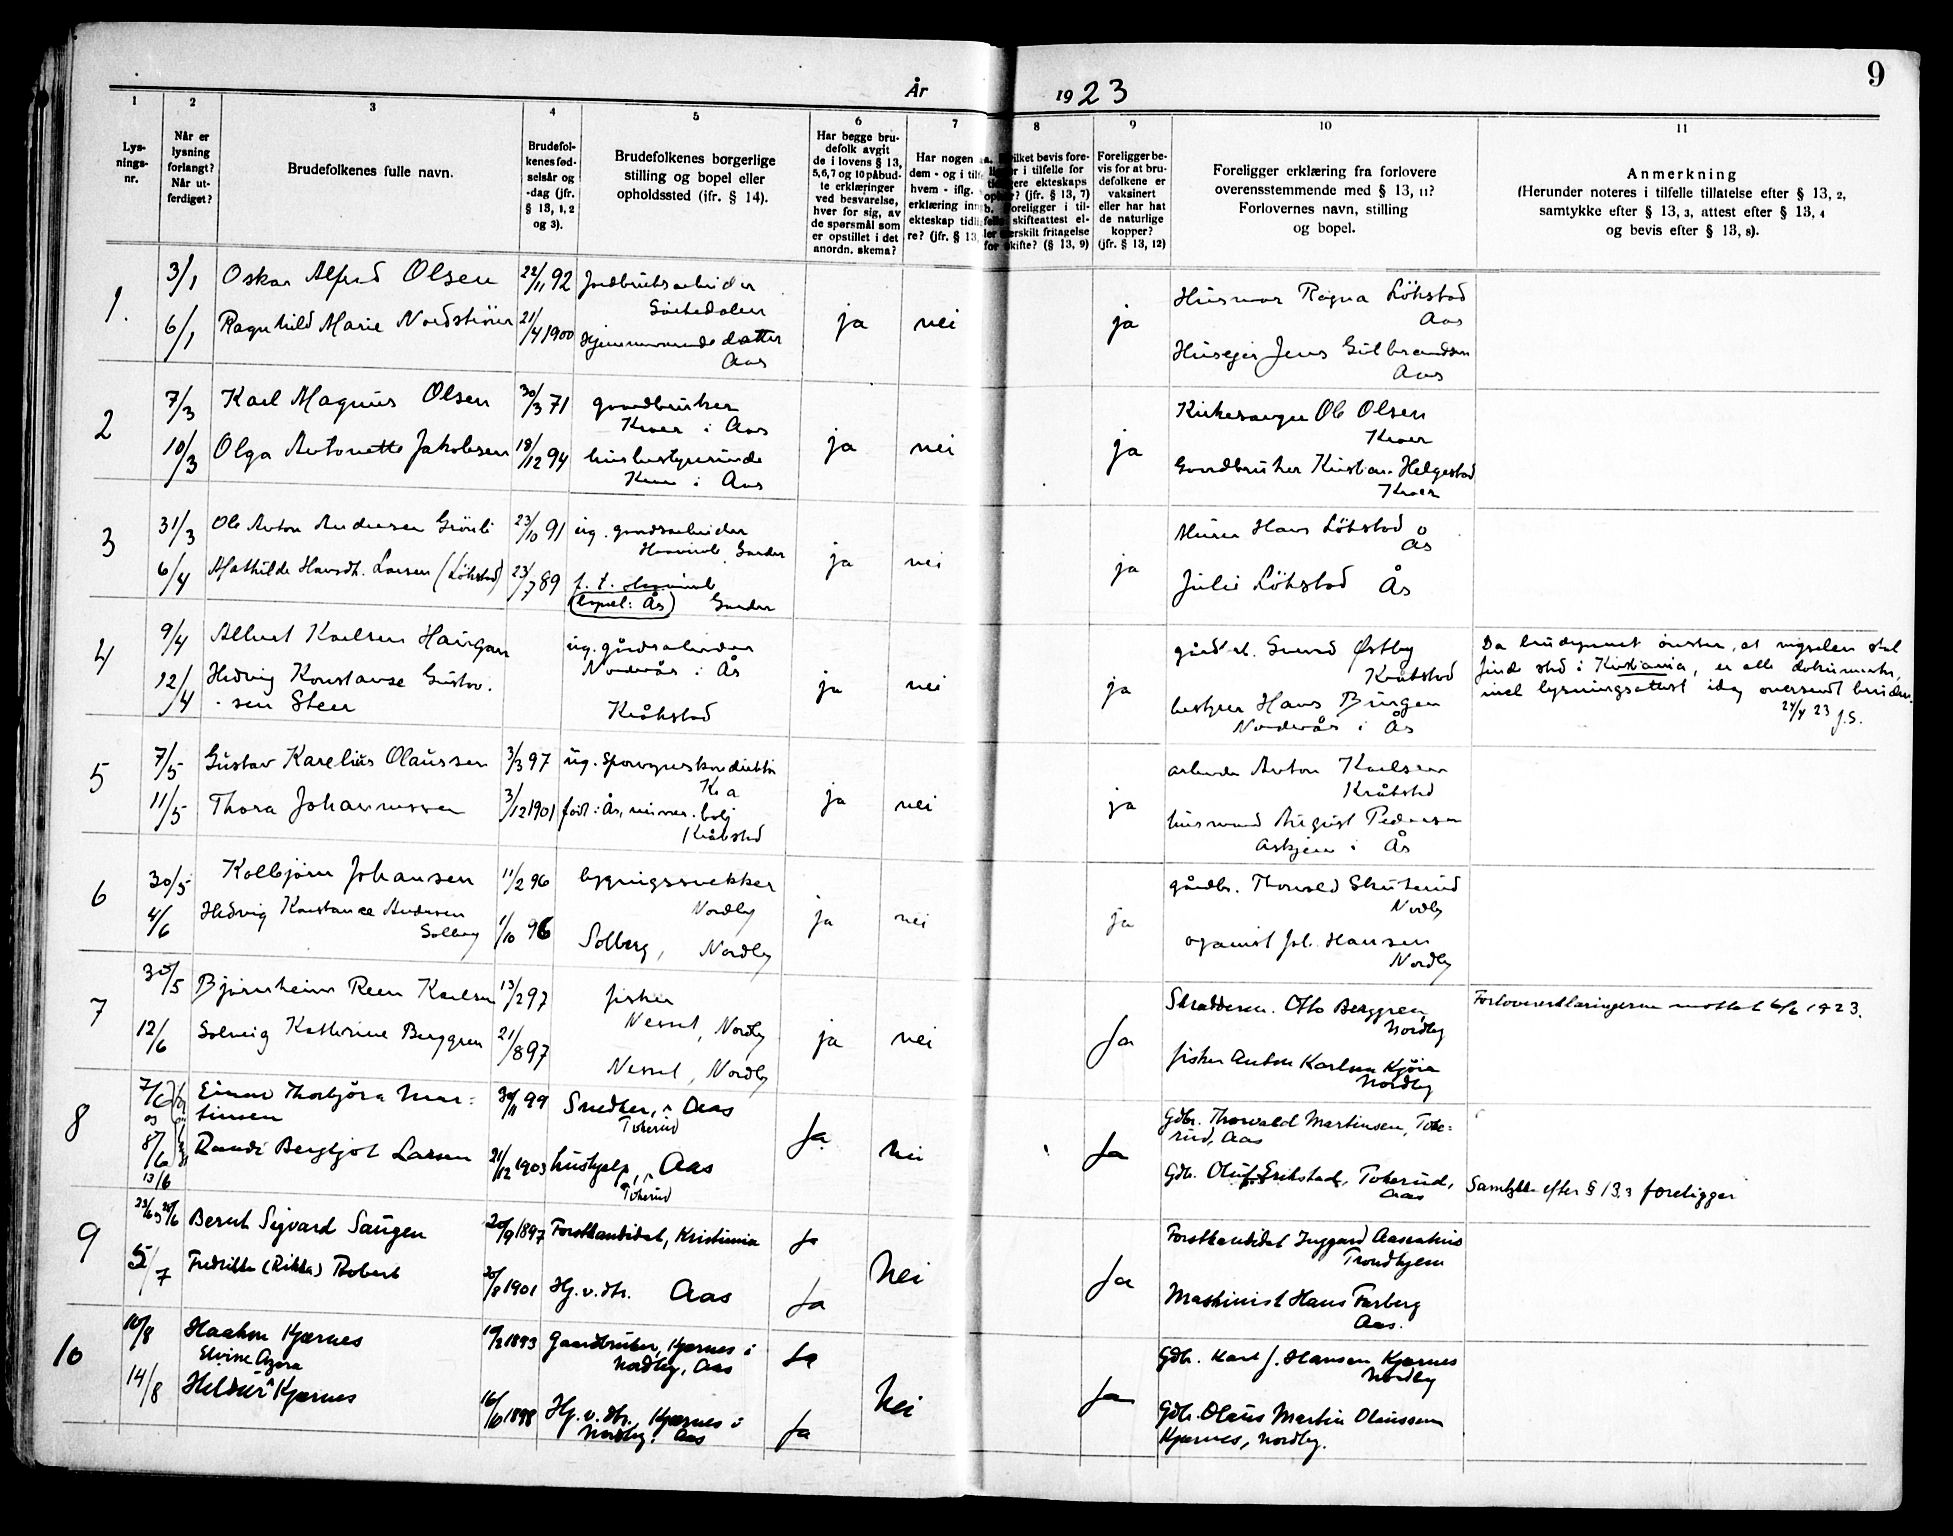 År 1923
9
1
2
3
4
5
6
7
8
9
10
11
Lys-
nings-
nr.
Når er
lysning
forlangt?
Når ut-
ferdiget?
Brudefolkenes fulle navn.
Brudefol-
kenes fød-
selsår og
-dag (jfr.
§ 13, 1, 2
og 3).
Brudefolkenes borgerlige
stilling og bopel eller
opholdssted (ifr. § 14).
Har begge bru-
defolk avgit
de i lovens § 13,
5, 6, 7 og 10 påbud-
te erklæringer
ved besvarelse,
hver for sig, av
de spørsmål som
er opstillet i det
anordn. skema?
Har nogen
dem - og i
hvem - iflg.
erklæring
ekteskap
re? (jfr. § 13,
bevis fore-
i tilfelle for
ekteskaps
? (jfr. § 13, 7)
Foreligger i til-
skifteattest el-
fritagelse
for skifte? (§ 13, 9)
Foreligger be-
vis for at bru-
defolkene er
vaksinert
eller har hat
de naturlige
kopper?
(jfr. § 13, 12)
Foreligger erklæring fra forlovere
overensstemmende med § 13, 11?
Forlovernes navn, stilling
og bopel.
Anmerkning
(Herunder noteres i tilfelle tillatelse efter § 13, 2,
samtykke efter § 13, 3, attest efter § 13, 4
og bevis efter § 13, 8).
1.
3/1 Oskar Alfred Olsen 22/11 92 Jordbruksarbeider
Sørkedalen
6/1 Ragnhild Marie Nordstrøm 21/4 1900 Hjemmeværende datter
Aas
ja nei ja
Husmor Ragna Løkstad
Aas
Huseier Jens Gulbrandsen
Aas
2
7/3 Karl Magnus Olsen 30/3 71 gaardbruker
Kroer i Aas
10/3 Olga Antonette Jakobsen 18/12 94 husbestyrerinde
Kroer i Aas
ja nei ja
Kirkesanger Ole Olsen
Kroer
Gaardbruker Kristian Helgestad
Kroer
3
31/3 Ole Anton Andersen Grønli 23/10 91 ug. gaardsarbeider
Garder
6/4 Mathilde Hansdt. Larsen (Løkstad) 23/7 89 f. t.
(bopel: Ås) Garder
ja nei ja
Murer Hans Løkstad
Ås
Julie Løkstad Ås
4
9/4 Albert Karlsen Haugan ug. gårdsarbeider
Norderås i Ås
12/4 Hedvig Konstanse Gustav-
sen Steen Kråkstad
ja nei ja
gårdbr. Svend Østby
Kråkstad
bestyrer Hans Bungen
Norderås i Ås
Da brudeparret ønsker, at vigselen skal
finde sted i Kristiania, er alle dokumenter,
inkl lysningsattest idag oversendt bruden.
24/4 23 J.S.
5
7/5 Gustav Karelius Olaussen 3/3 97 ug. Sporveiskonduktør
Kra
11/5 Thora Johannessen 3/12 1901 født: Ås, nuvær. bolj
Kråkstad
ja nei ja
arbeider Anton Karlsen
Kråkstad
husmand August Pedersen
Askjem i Ås
6
30/5 Kolbjørn Johansen 11/2 96 bygningssnekker
Nordby
4/6 Hedvig Konstance Andersen
Solberg 1/10 96 Solberg, Nordby
ja nei ja
gårdbr. Thorvald Skuterud
Nordby
organist Joh. Hansen
Nordby
7
30/5 Bjørnheim Reen Karlsen 13/2 97 fisker
Nesset, Nordby
12/6 Solveig Kathrine Berggren 21/8 97
Nesset, Nordby
ja nei Ja
Skreddersv. Otto Berggren,
Nordby
fisker Anton Karlsen Kjøia
Nordby
Forlovererklæringerne mottat 6/6 1923.
8
7/6 Einar Thorbjørn Mar-
og tinsen 30/11 99 Snedker, i Aas
Tokerud
8/6 Randi Bergljot Larsen 21/12 1903 hushjelp, Aas
13/6 Tokerud
Ja nei Ja
Gdbr. Thorvald Martinsen, Toke-
rud, Aas
Gdbr. Oluf Erikstad, Tokerud,
Aas
Samtykke efter § 13, 3 foreligger
9
22/6 28/6 Bernt Sigvard Saugen 20/9 1897 Forstkandidat, Kristiania Ja
5/7 Fredrikke (Rikka) Robert 30/8 1901 Hj. v. dtr. Aas Ja
Nei Ja
Forstkandidat Inggard Aasenhus
Trondhjem
Maskinist Hans Farberg
Aas.
10
10/8 Haakon Kjærnes 19/2 1893 Gaardbruker, Kjærnes i
Nordby, Aas Ja
Elvine Azora
14/8 Heldur Kjærnes 16/10 1898 Hj. v. dtr. Kjærnes i
Nordby. Aas Ja
Nei Ja
Gdbr. Karl J. Hansen Kjærnes
Nordby
Gdbr. Olaus Martin Olaussen
Kjærnes, Nordby.